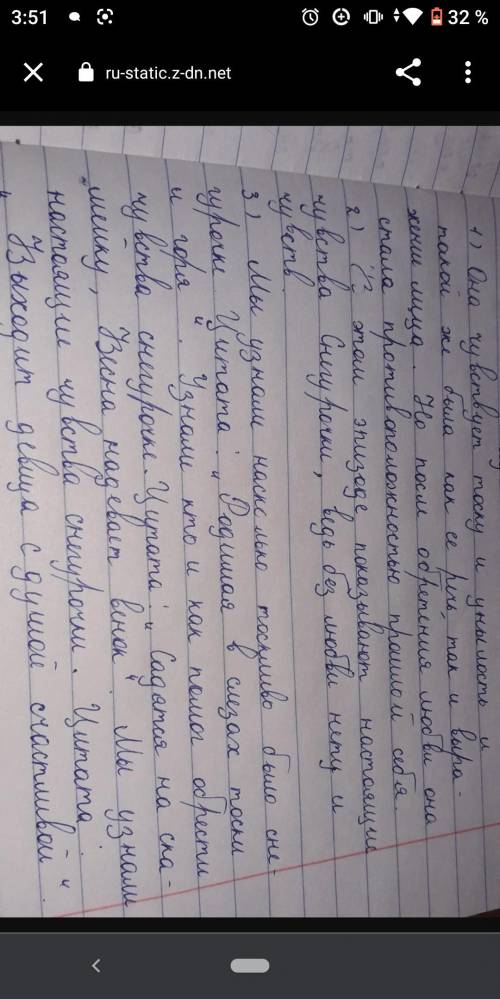 3:51
32 %
ru-static.z-dn.net
1) Она чувствует тоску и унылость и
такой же была как её речь, так и выра-
жени лица. Но после обретения любви она
стала противоположностью прошлой себя.
2) В этом эпизоде показывают настоящие
чувства Снегурочки, ведь без любви нету и
чувств
3) Мы узнали насколько тоскливо было сне-
гурочке Цитата: "Родимая в слезах тоски
и горя". Узнали кто и как помог обрести
чувства снегурочке. Цитата: "Садятся на ска-
мейку, Весна надевает венок". Мы узнали
настоящие чувства снегурочки. Цитата:
"Выходит девица с душой счастливой".